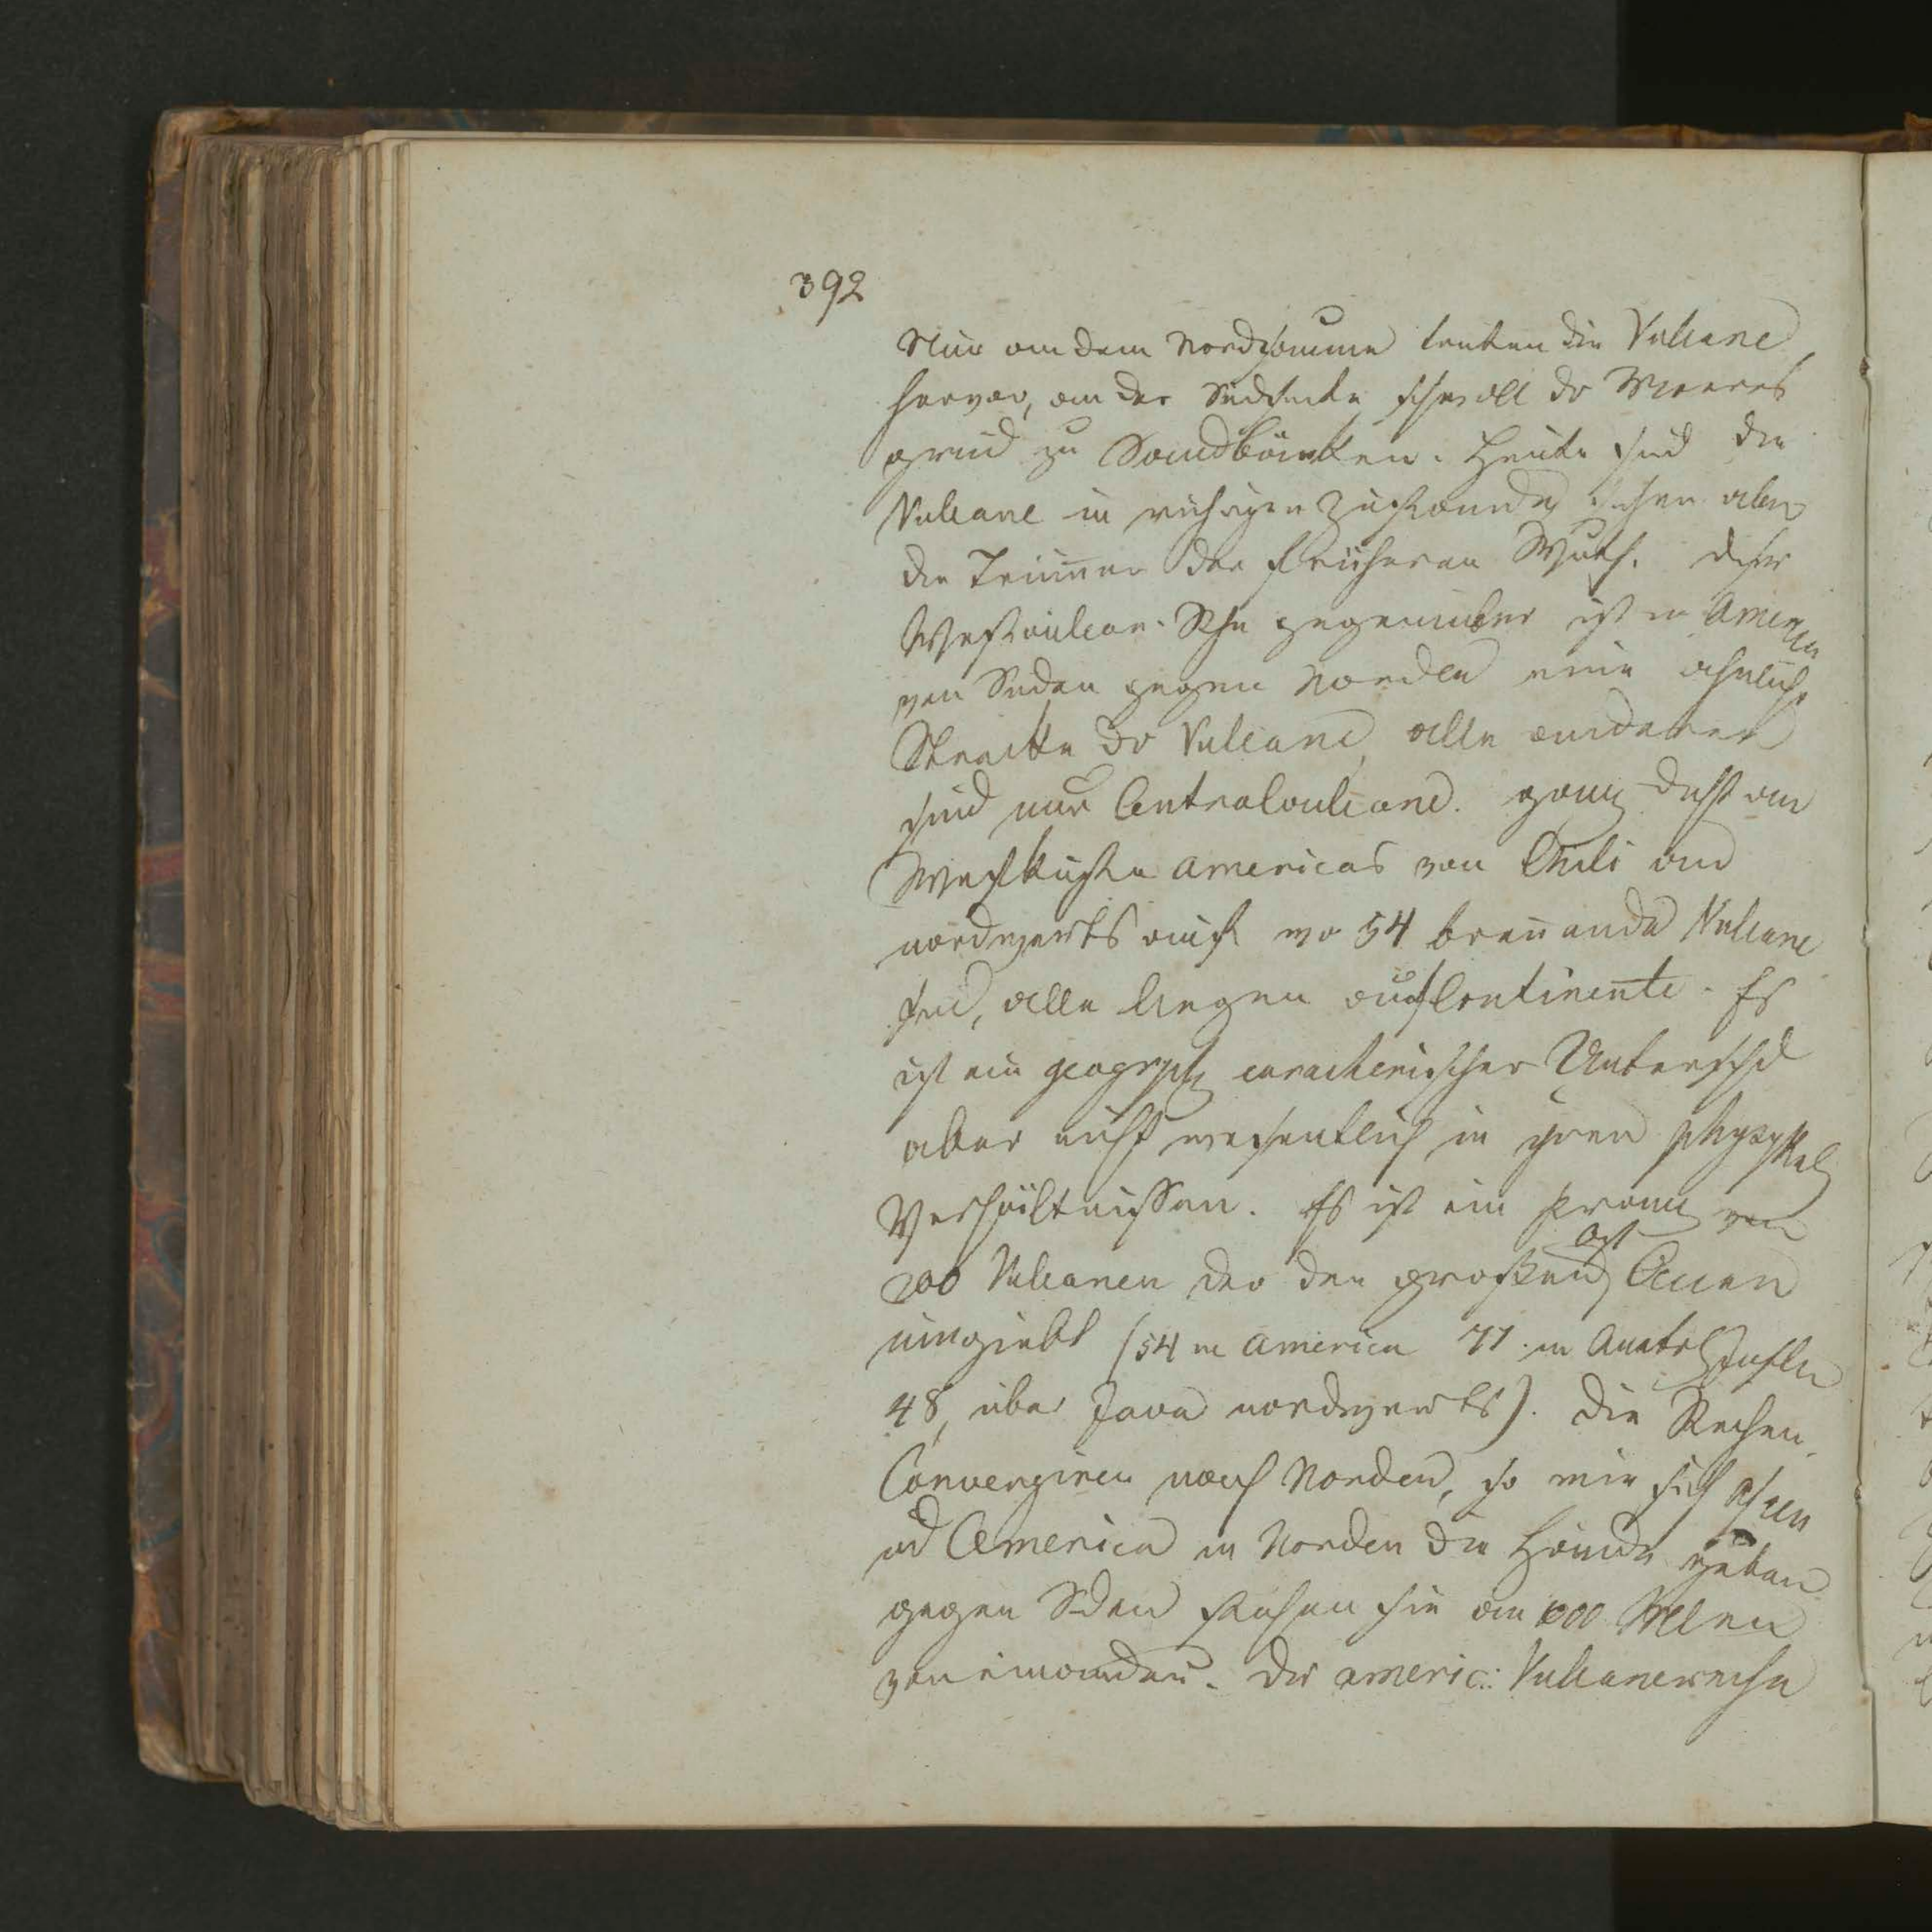 392
Nur an dem Nordsaume traten die Vulcane
hervor, an der Südseite schwoll dr Meeres
grund zu Sandbänken. Heute sind die
Vulcane in ruhigen Zustande, sehen aber
die Trüm̅er der früheren Wuth. Dieser
Westvulcan-Reihe gegenüber ist in America
von Süden gegen Norden eine ähnliche
Strecke dr Vulcane, alle anderen
sind nur Centralvulcane. ganz dicht an
Westküste Americas von Chili an
nordwerts auf wo 54 bren̅ende Vulcane
sind, alle liegen auf Continente. Es
ist ein geogrph caracterischer Unterschd
aber nicht wesentlich in ihren physykal
Verhältnissen. Es ist ein Kranz von
200 Vulcanen der den großen Ost Ocean
umgiebt (54 in America 77. in Austrl Inseln
48, über Java nordwerts). Die Reihen
Convergiren nach Norden, so wie sich Asien
und America in Norden die Hände geben
gegen Süden stehen sie an 1000 Meilen
von einander. Die americ: Vulcanereihe